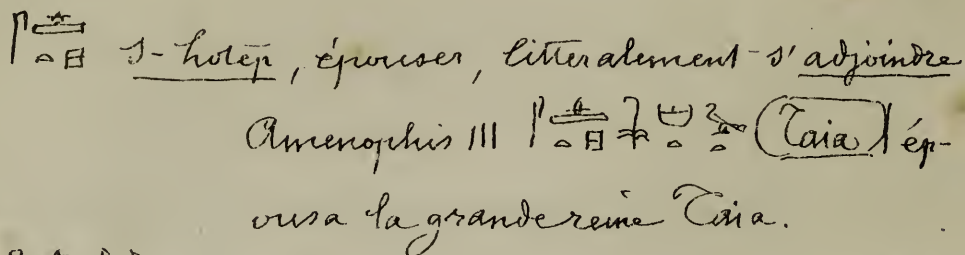 𓋴𓊵𓏏𓊪 s-hotep, épouser, litteralement s'adjoindre
Amenophis III 𓋴𓊵𓏏𓊪 (Taia) ép-
ousa la grande reine Taia.